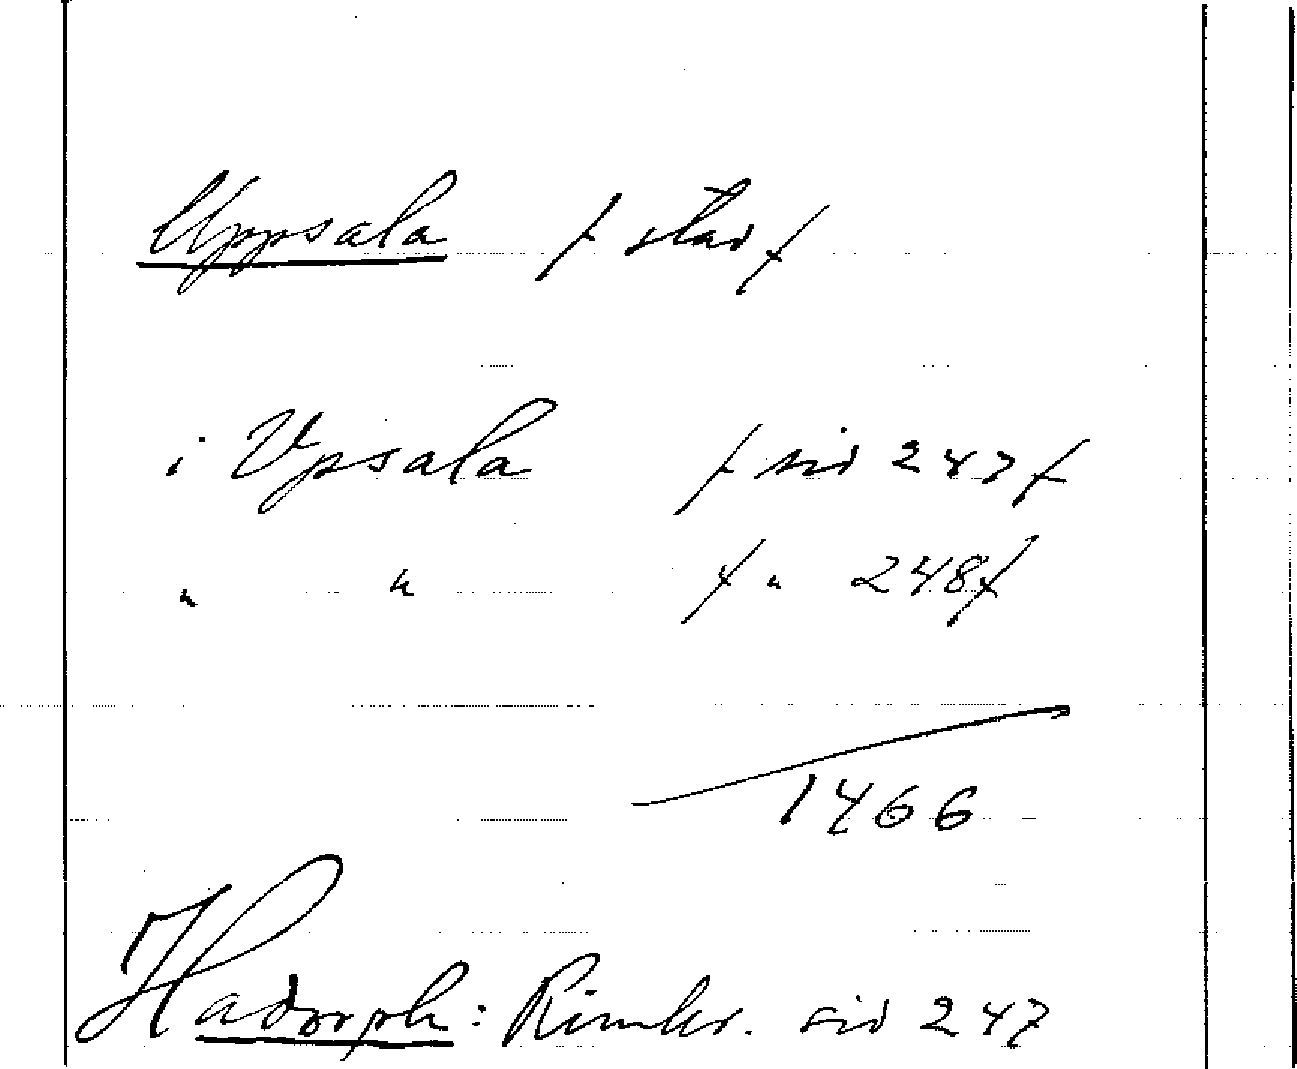 Uppsala / stad /
i Vpsala / sid 247 /
" " / " 248 /
1466
Hadorph: Rimkr. sid 247